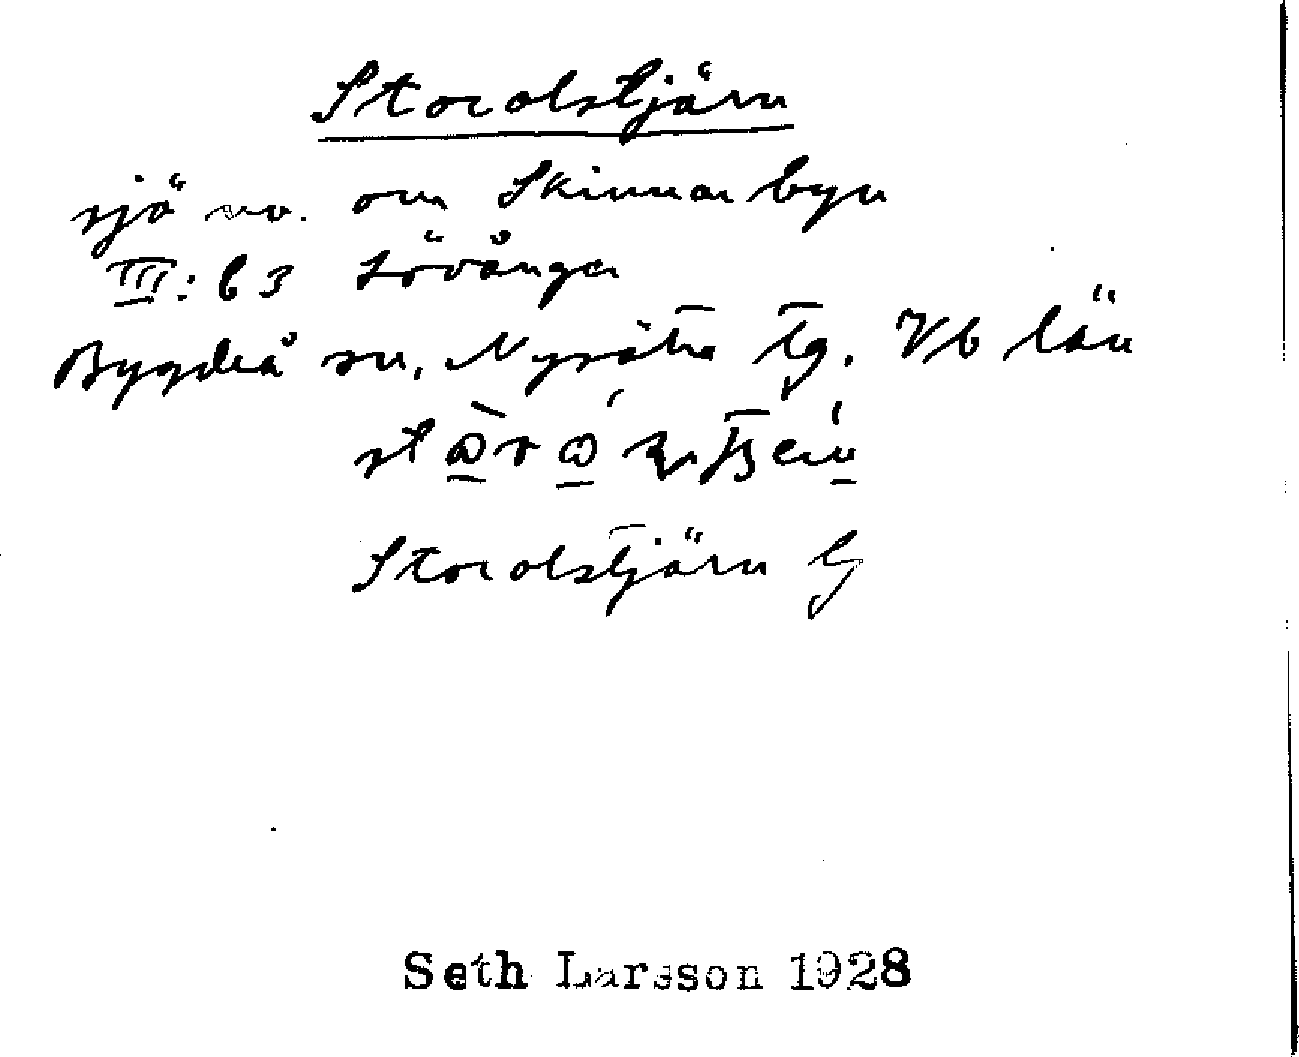 Storolstjärn
sjö no. om Skinnarbyn
III: b 3 Lövånger
Bygdeå sn, Nysätra tg. Vb län
Storolstjärn
Seth Larsson 1928